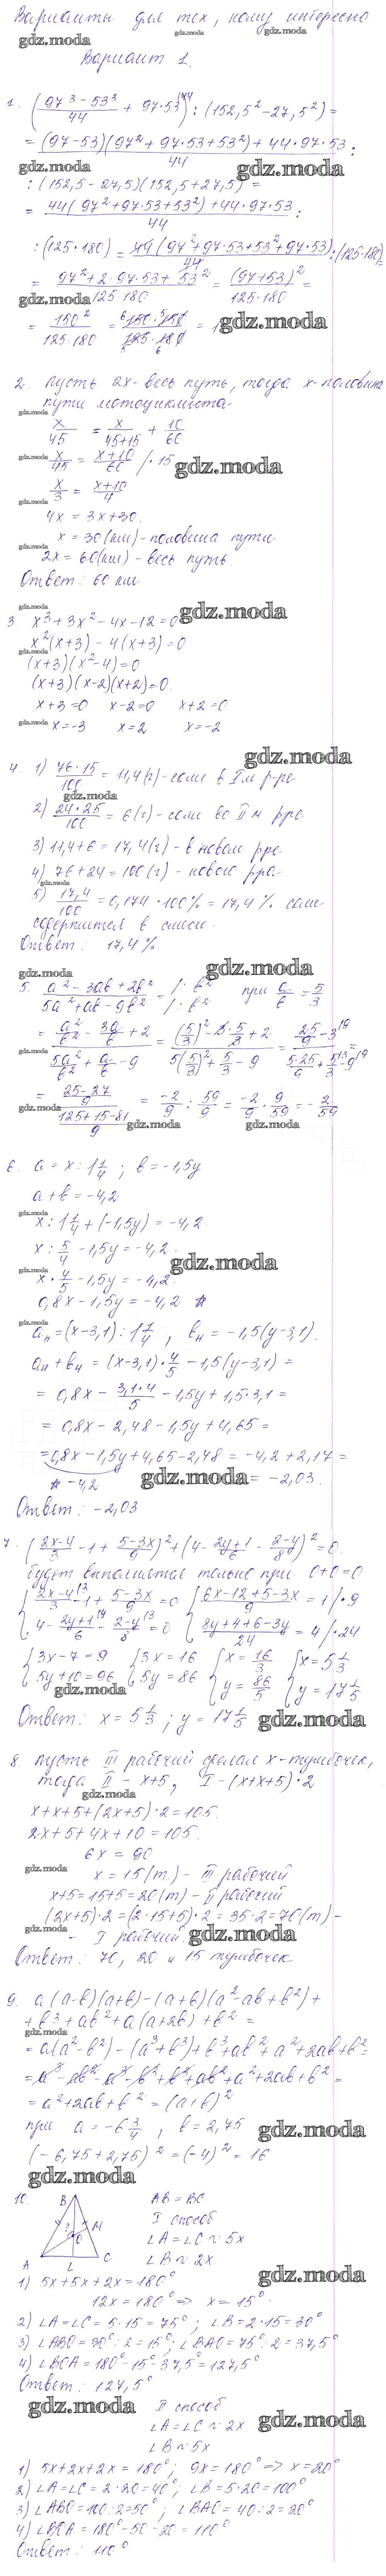 Варианты для тех, кому интересно
gdz.moda
Вариант 1.
1. (97³ - 53³ / 44 + 97·53) : (152,5² - 27,5²) =
= (97-53)(97² + 97·53 + 53²) + 44·97·53 / 44 :
gdz.moda
: (152,5 - 27,5)(152,5 + 27,5) =
= 44(97² + 97·53 + 53²) + 44·97·53 / 44 :
: (125·180) = 44(97² + 97·53 + 53² + 97·53) / 44 : (125·180) =
= 97² + 2·97·53 + 53² / 125·180 = (97+53)² / 125·180 =
gdz.moda
= 150² / 125·180 = 150·150 / 125·180 = 1
gdz.moda
2. Пусть 2x - весь путь, тогда x - половина
пути мотоциклиста
gdz.moda
x/45 = x/45+15 + 10/60
x/45 = x+10/60 /·15
gdz.moda
x/3 = x+10/4
4x = 3x + 30
x = 30 (км) - половина пути
2x = 60 (км) - весь путь
Ответ: 60 км
3 x³ + 3x² - 4x - 12 = 0
gdz.moda
x²(x+3) - 4(x+3) = 0
(x+3)(x²-4) = 0
(x+3)(x-2)(x+2) = 0
x+3=0 x-2=0 x+2=0
gdz.moda x=-3 x=2 x=-2
gdz.moda
4. 1) 76·15/100 = 11,4 (г) - соли в I м р-ре
gdz.moda
2) 24·25/100 = 6 (г) - соли во II м рре
3) 11,4+6 = 17,4 (г) - в новом рре
4) 76+24 = 100 (г) - нового рра
gdz.moda
5) 17,4/100 = 0,174·100% = 17,4% соли
содержится в смеси.
Ответ: 17,4%
gdz.moda gdz.moda
5. a² - 3ab + 2b² / 5a² + ab - 9b² = /: b² /: b² при a/b = 5/3
= a²/b² - 3a/b + 2 / 5a²/b² + a/b - 9 = (5/3)² - 3·5/3 + 2 / 5(5/3)² + 5/3 - 9 = 25/9 - 3 / 5·25/9 + 5/3 - 9 =
= 25-27/9 / 125+15-81/9 = -2/9 : 59/9 = -2/9 · 9/59 = -2/59
gdz.moda gdz.moda gdz.moda
6. a = x : 1 1/4 ; b = -1,5y
a + b = -4,2
gdz.moda
x : 1 1/4 + (-1,5y) = -4,2
x : 5/4 - 1,5y = -4,2
gdz.moda
x · 4/5 - 1,5y = -4,2
0,8x - 1,5y = -4,2 *
gdz.moda
aн = (x-3,1) : 1 1/4 , bн = -1,5(y-3,1).
aн + bн = (x-3,1)·4/5 - 1,5(y-3,1) =
= 0,8x - 3,1·4/5 - 1,5y + 1,5·3,1 =
= 0,8x - 2,48 - 1,5y + 4,65 =
= 0,8x - 1,5y + 4,65 - 2,48 = -4,2 + 2,17 =
* -4,2 gdz.moda = -2,03.
Ответ: -2,03
7. (2x-4/3 - 1 + 5-3x/9)² + (4 - 2y+1/6 - 2-y/8)² = 0.
будет выполняется только при 0+0=0
2x-4/3 - 1 + 5-3x/9 = 0 6x-12+5-3x/9 = 1 /·9
4 - 2y+1/6 - 2-y/8 = 0 8y+4+6-3y/24 = 4 /·24
3x-7=9 3x=16 x=16/3 x=5 1/3
5y+10=96 5y=86 y=86/5 y=17 1/5
gdz.moda
Ответ: x = 5 1/3 ; y = 17 1/5 gdz.moda
8. Пусть III рабочий сделал x - тумбочек,
тогда II - x+5, I - (x+x+5)·2
gdz.moda
x + x+5 + (2x+5)·2 = 105.
2x+5+4x+10 = 105.
6x = 90
gdz.moda
x = 15 (т.) - III рабочий
x+5 = 15+5 = 20 (т) - II рабочий
(2x+5)·2 = (2·15+5)·2 = 35·2 = 70 (т) -
gdz.moda
- I рабочий. gdz.moda
Ответ: 70, 20 и 15 тумбочек
9. a(a-b)(a+b) - (a+b)(a² - ab + b²) +
+ b³ + ab² + a(a+2b) + b² =
gdz.moda
= a(a²-b²) - (a³+b³) + b³ + ab² + a² + 2ab + b² =
= a³ - ab² - a³ - b³ + b³ + ab² + a² + 2ab + b² =
= a² + 2ab + b² = (a+b)²
при a = -6 3/4 , b = 2,75 gdz.moda
(-6,75 + 2,75)² = (-4)² = 16
gdz.moda
10. B AB = BC
I способ
? M ∠A = ∠C ≈ 5x
O
∠B ≈ 2x
A L C
gdz.moda
1) 5x + 5x + 2x = 180°
12x = 180° => x = 15°
2) ∠A = ∠C = 5·15 = 75° ; ∠B = 2·15 = 30°
3) ∠ABO = 30° : 2 = 15° ; ∠BAO = 75° : 2 = 37,5°
4) ∠BOA = 180° - 15° - 37,5° = 127,5°
Ответ: 127,5°
gdz.moda II способ gdz.moda
∠A = ∠C ≈ 2x
∠B ≈ 5x
1) 5x + 2x + 2x = 180° ; 9x = 180° => x = 20°
2) ∠A = ∠C = 2·20 = 40° ; ∠B = 5·20 = 100°
3) ∠ABO = 100 : 2 = 50° ; ∠BAO = 40 : 2 = 20°
4) ∠BOA = 180° - 50 - 20 = 110°
Ответ: 110°